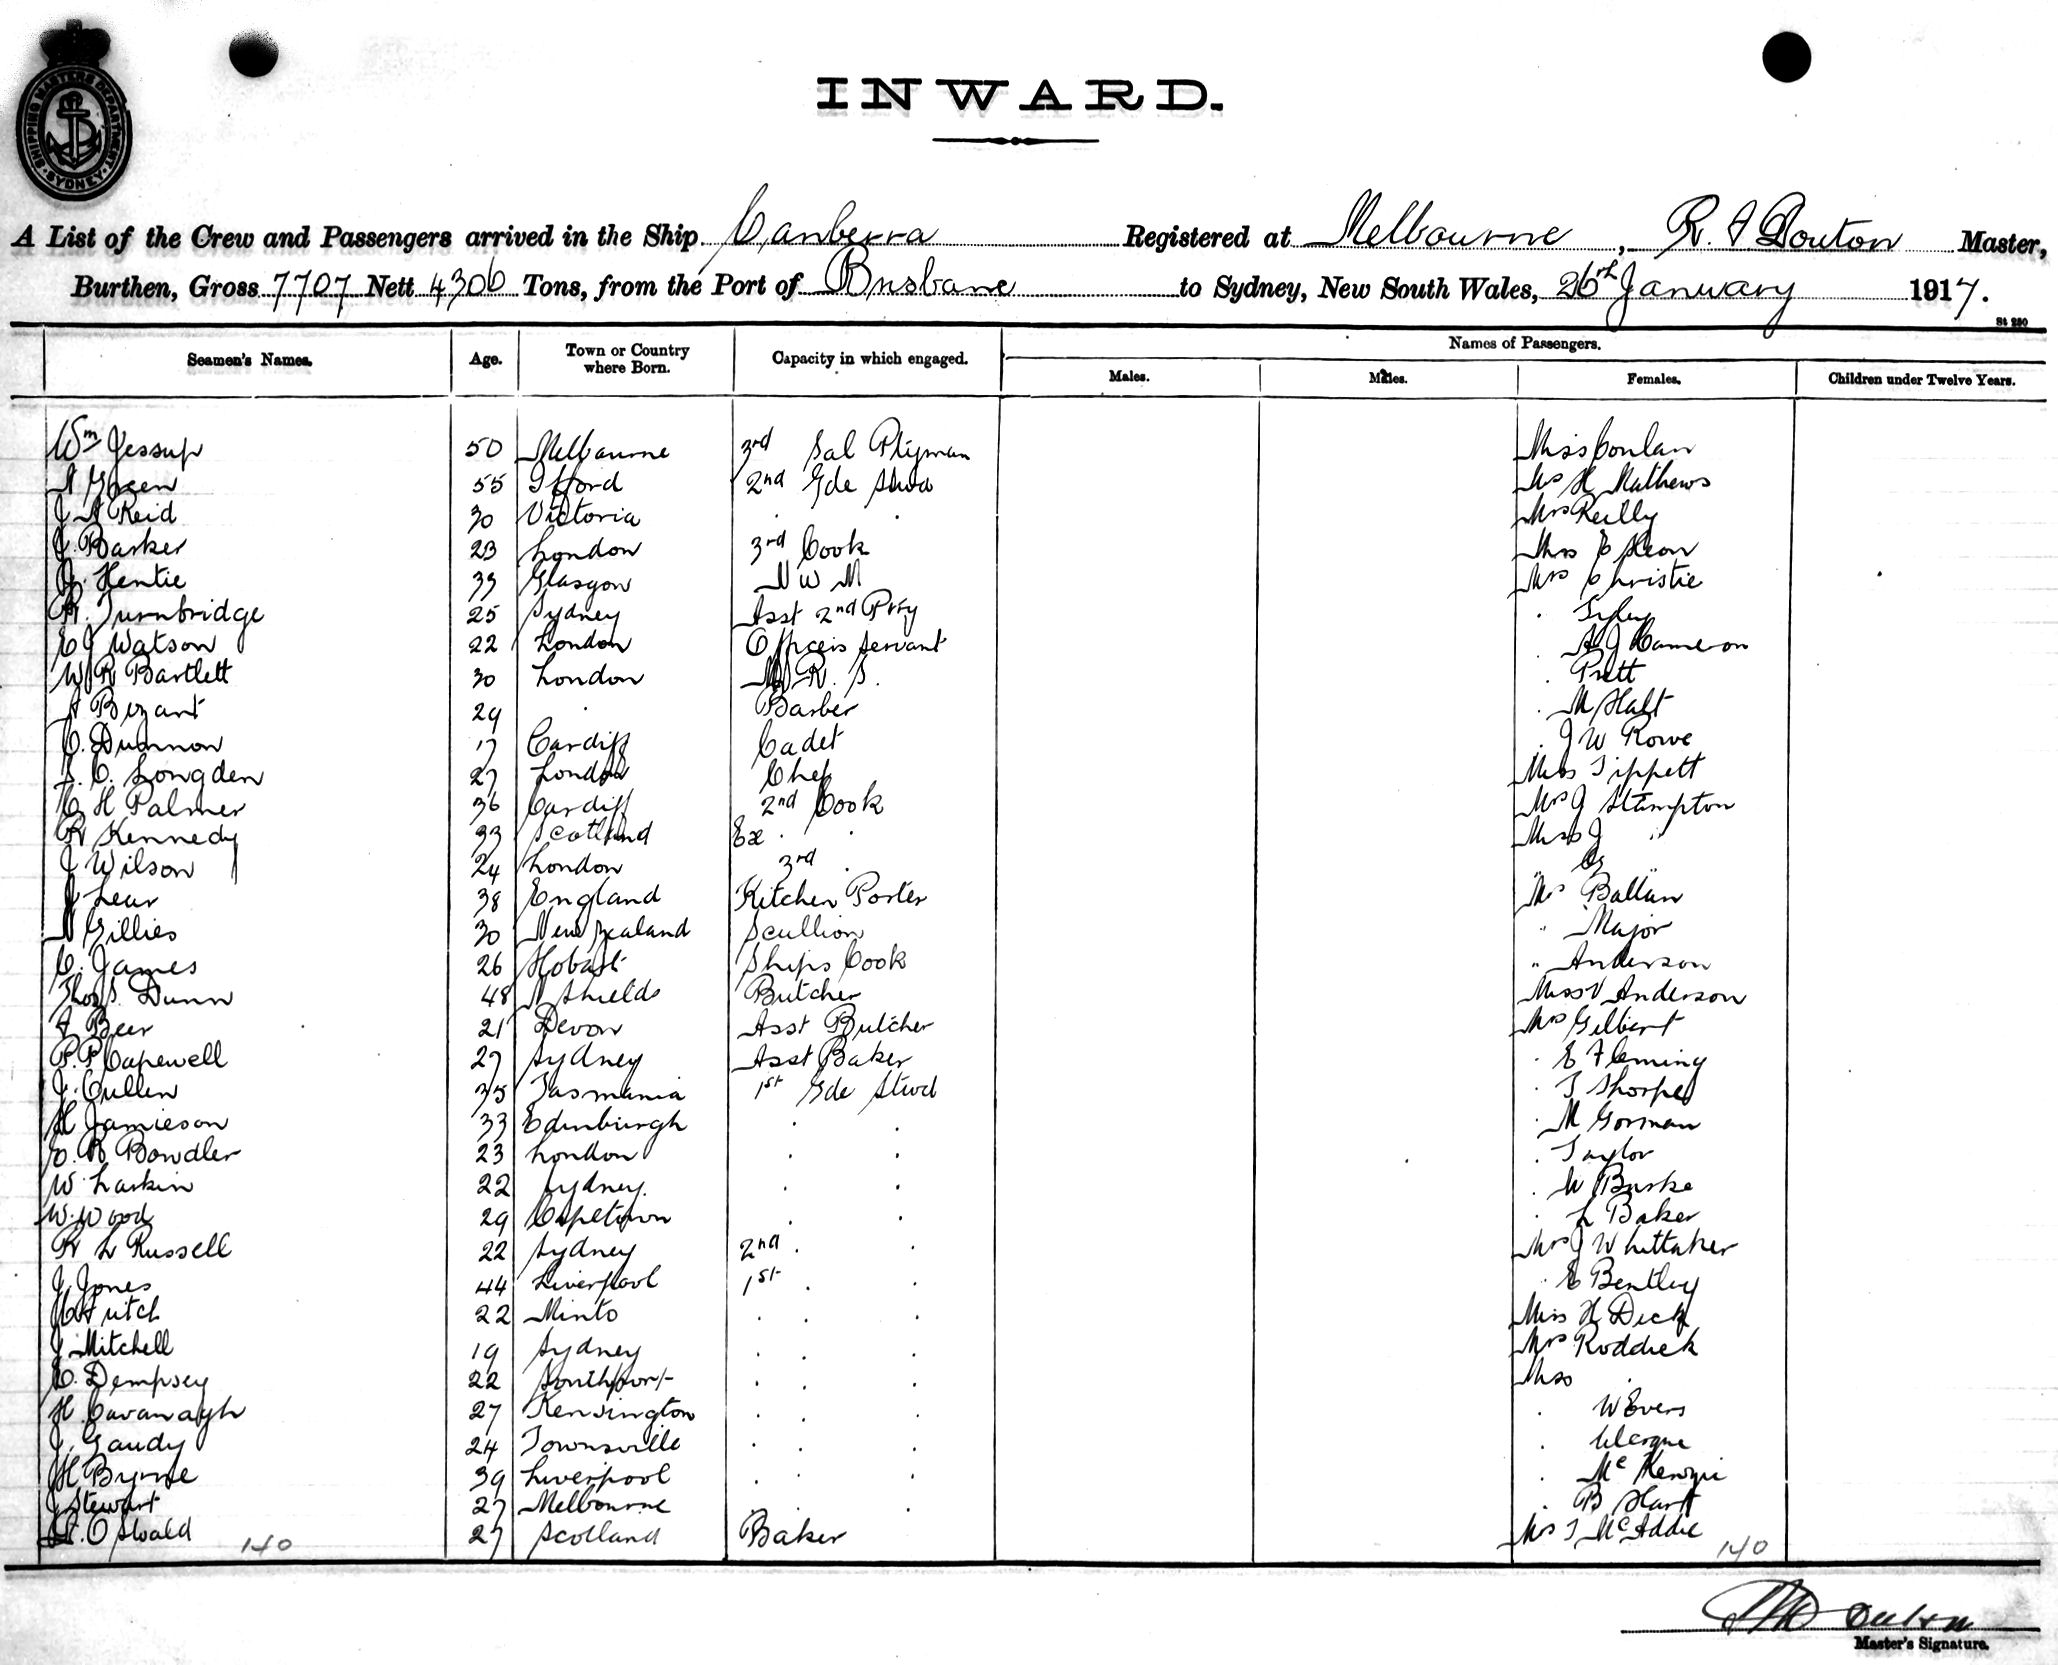 SHIPPING MASTERS DEPARTMENT SYDNEY
INWARD.
A List of the Crew and Passengers arrived in the Ship Canberra Registered at Melbourne, R. Douton Master,
Burthen, Gross 7707 Nett 4306 Tons, from the Port of Brisbane to Sydney, New South Wales, 26th January 1917.
St 250
Seamen's Names. Age. Town or Country where Born. Capacity in which engaged. Names of Passengers.
Males. Males. Females. Children under Twelve Years.
Wm Jessup 50 Melbourne 3rd Sal Miss Conlan
Green 55 2nd Gde Stwd Mrs H Mathews
J A Reid 30 Victoria . . Mrs Reilly
J. Barker 23 London 3rd Cook Miss E
J. Hentie 33 Glasgow N W M Mrs Christie
R. Turnbridge 25 Sydney Asst 2nd Ptry .
E J Watson 22 London Officers Servant . A J Cameron
W R Bartlett 30 London R. S. . Pratt
A Bezant 29 . Barber . M Halt
C. Dunnon 17 Cardiff Cadet . J W Rowe
S. C. Longden 27 London Chef Miss Tippett
C H Palmer 36 Cardiff 2nd Cook Mrs J Stampton
R Kennedy 33 Scotland Ex . . Miss J "
J Wilson 24 London 3rd . " G "
J Lear 38 England Kitchen Porter Mrs Ballan
N Gillies 30 New Zealand Scullion " Major
C. James 26 Hobart Ships Cook " Anderson
Thos S. Dunn 48 N Shields Butcher Miss V Anderson
A Beer 21 Devon Asst Butcher Mrs Gilbert
P. P Capewell 27 Sydney Asst Baker . E Fleming
J. Cullen 35 Tasmania 1st Gde Stwd . T Thorpe
H Jamieson 33 Edinburgh . . . M Gorman
E. R. Bowdler 23 London . . . Taylor
W. Larkin 22 Sydney. . . . W Burke
W. Wood 29 Capetown . . . L Baker
R L Russell 22 Sydney 2nd . . Mrs J Whittaker
J Jones 44 Liverpool 1st . . . E Bentley
22 Minto . . . Miss H Dick
J Mitchell 19 Sydney . . . Mrs Roddick
C. Dempsey 22 Southport . . . Miss .
H Cavanagh 27 Kensington . . . . W Evers
J. Gaudy 24 Townsville . . . .
H Byrne 39 Liverpool . . . . McKenzie
J Stewart 27 Melbourne . . . . B Hart
Oswald 27 Scotland Baker Mrs T McAddie
140 140
Douton
Master's Signature.